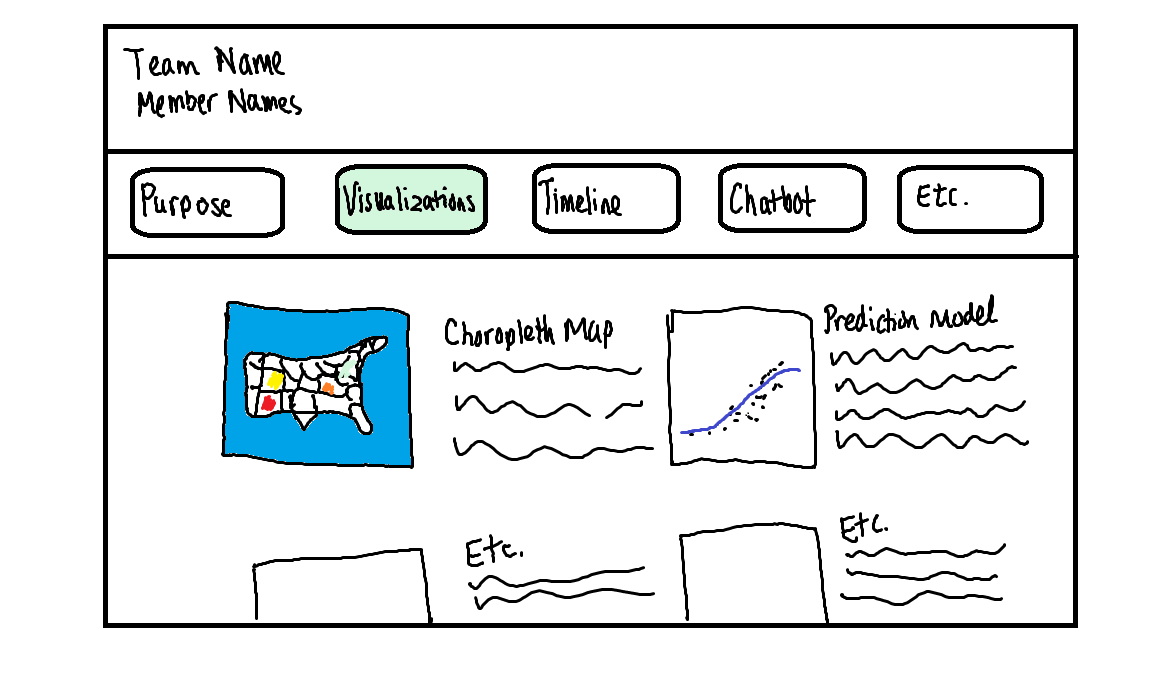 Team Name
Member Names
Purpose
Visualizations
Timeline
Chatbot
Etc.
Choropleth Map
Prediction Model
Etc.
Etc.